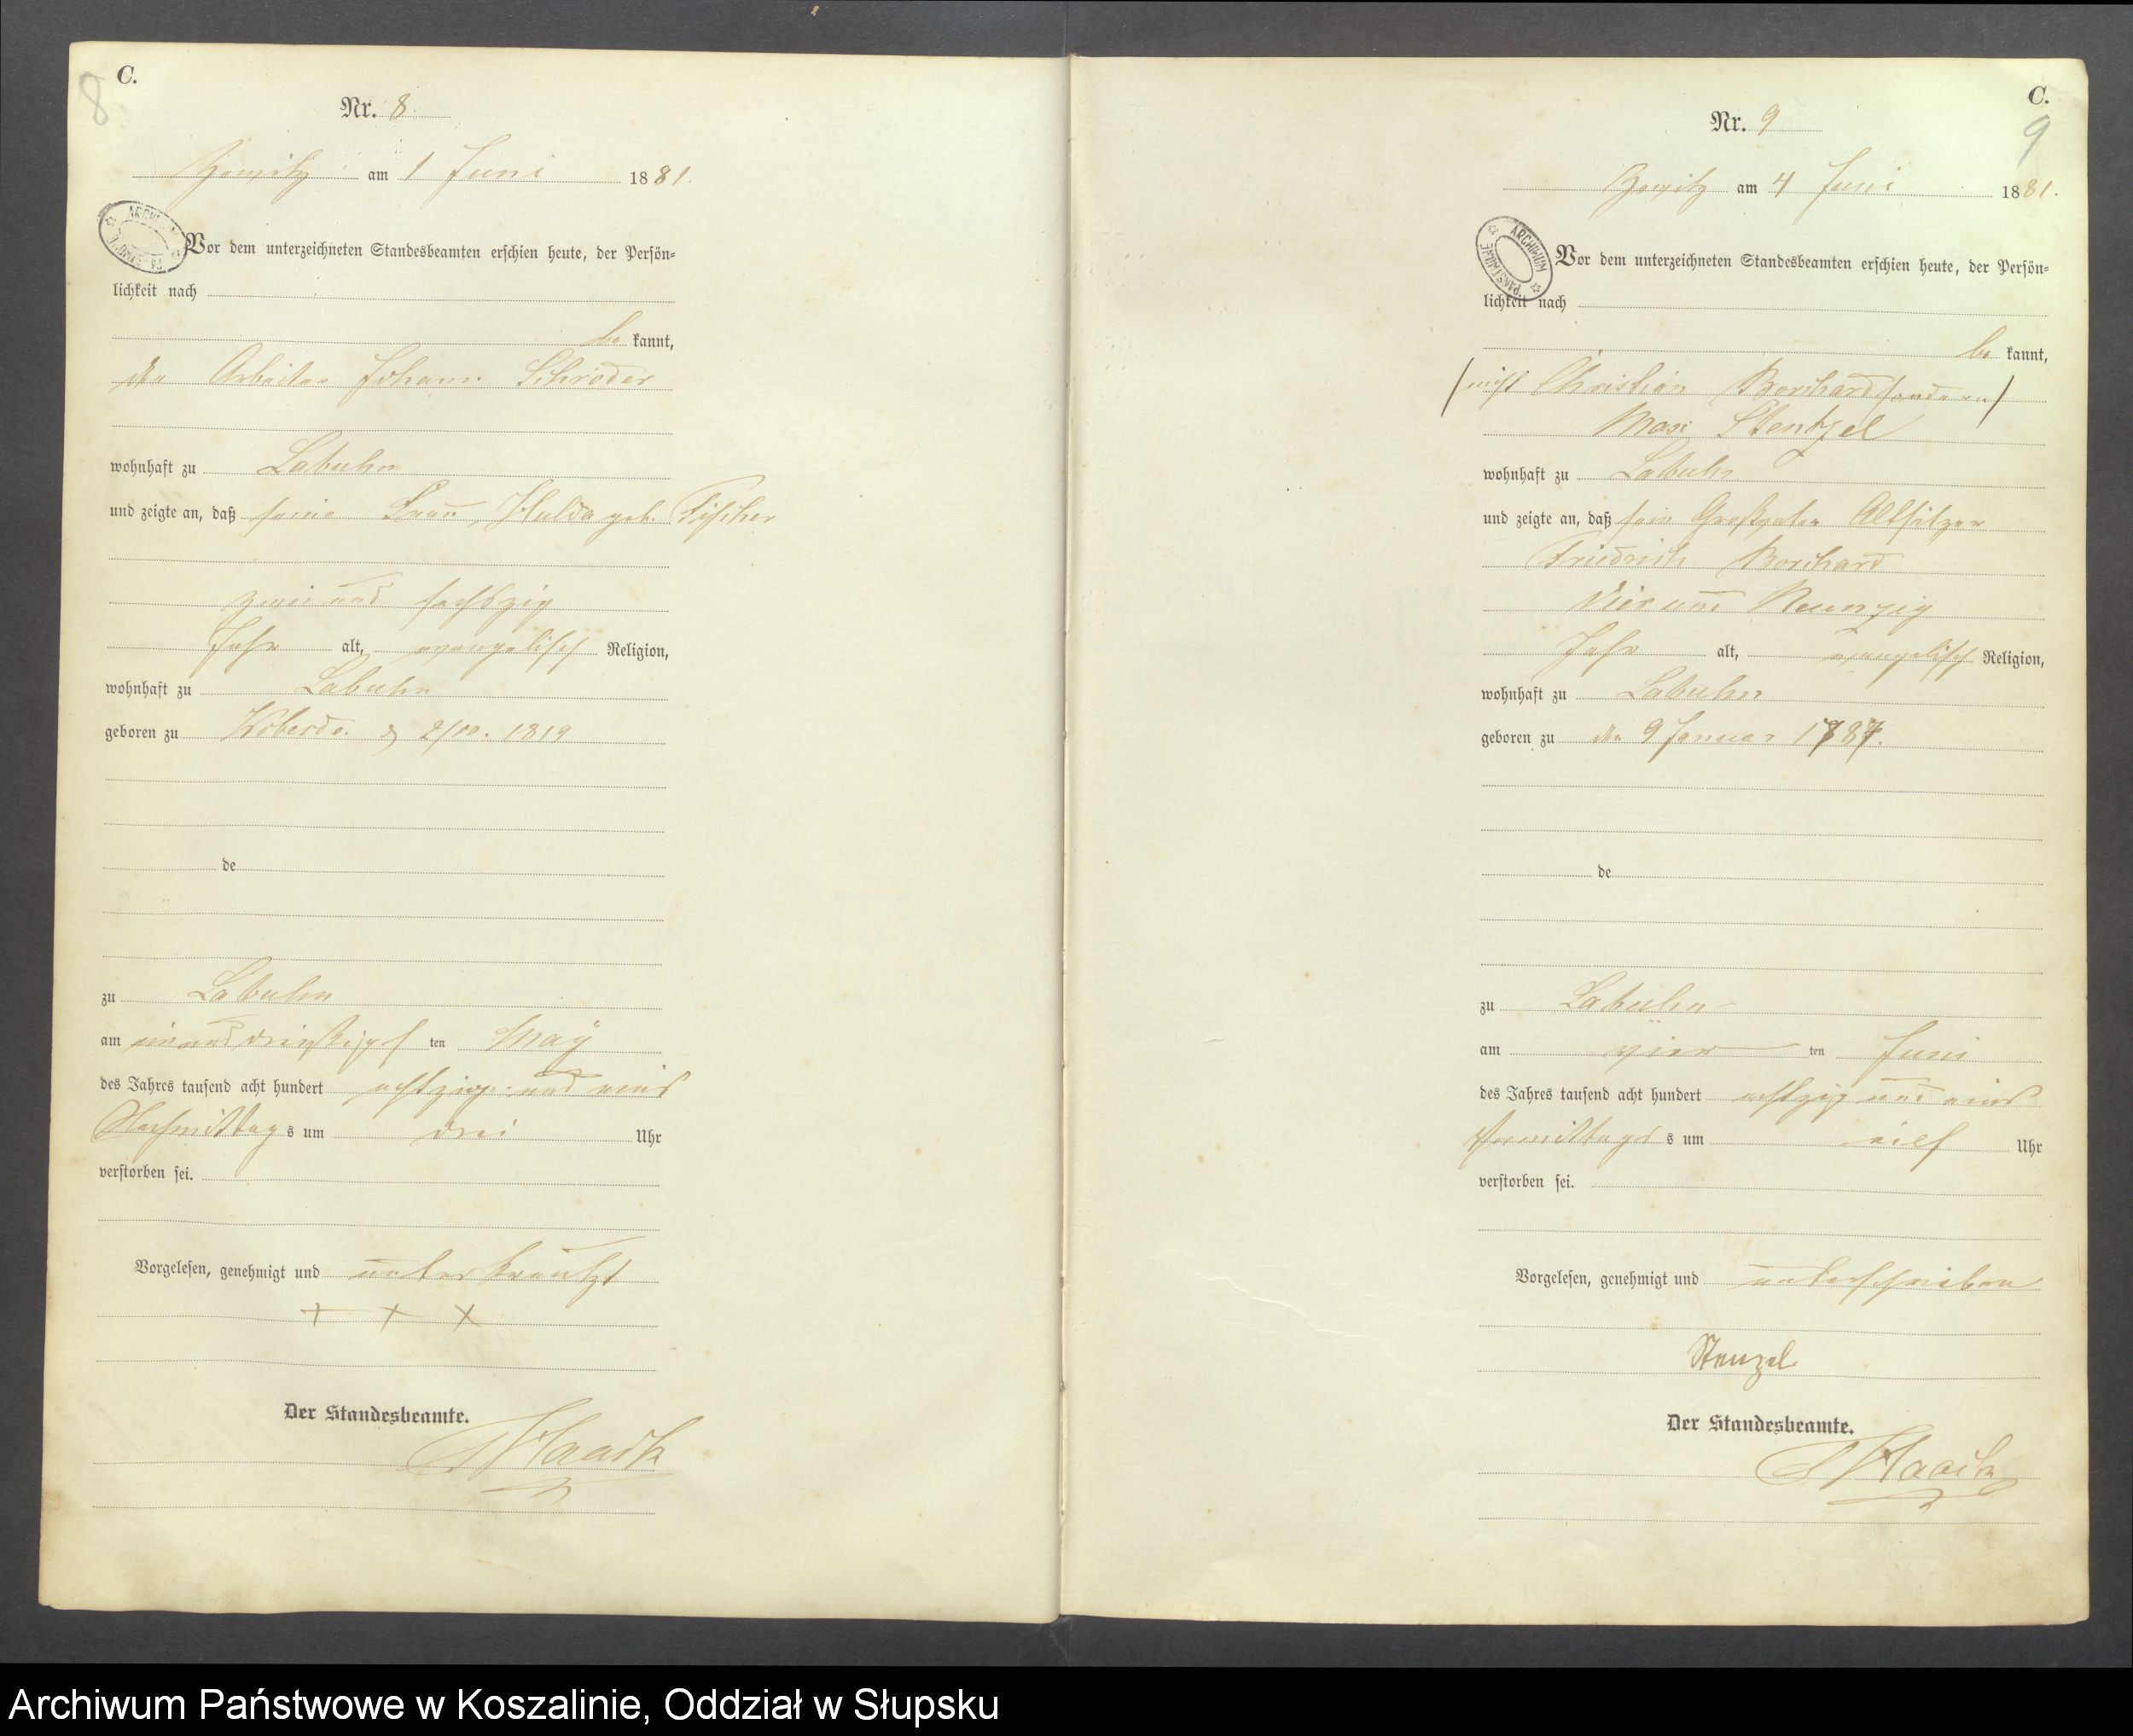 C.
8
Nr. 8.
Zewitz am 1 Juni 1881.
Vor dem unterzeichneten Standesbeamten erschien heute, der Persön=
lichkeit nach
be kannt,
der Arbeiter Johann Schröder
wohnhaft zu Labuhn
und zeigte an, daß seine Frau, Hulda geb. Fischer
zwei und sechszig
Jahr alt, evangelisch Religion,
wohnhaft zu Labuhn
geboren zu 2/10. 1819
de
zu Labuhn
am ein und dreißigst ten May
des Jahres tausend acht hundert achtzig und eins
Nachmittag s um drei Uhr
verstorben sei.
Vorgelesen, genehmigt und unterkreuzt
+ + X
Der Standesbeamte.
Haack
C.
9
Nr. 9
Zewitz am 4 Juni 1881.
ARCHIWUM PAŃSTWOWE
Vor dem unterzeichneten Standesbeamten erschien heute, der Persön=
lichkeit nach
be kannt,
(nicht Christian Borchard sondern)
Max Stentzel
wohnhaft zu Labuhn
und zeigte an, daß sein Großvater Altsitzer
Friedrich Borchard
Vier und Neunzig
Jahr alt, evangelisch Religion,
wohnhaft zu Labuhn
geboren zu den 9 Januar 1787.
de
zu Labuhn
am vier ten Juni
des Jahres tausend acht hundert achtzig und eins
Vormittags s um elf Uhr
verstorben sei.
Vorgelesen, genehmigt und unterschrieben
Stenzel
Der Standesbeamte.
Haack
Archiwum Państwowe w Koszalinie, Oddział w Słupsku